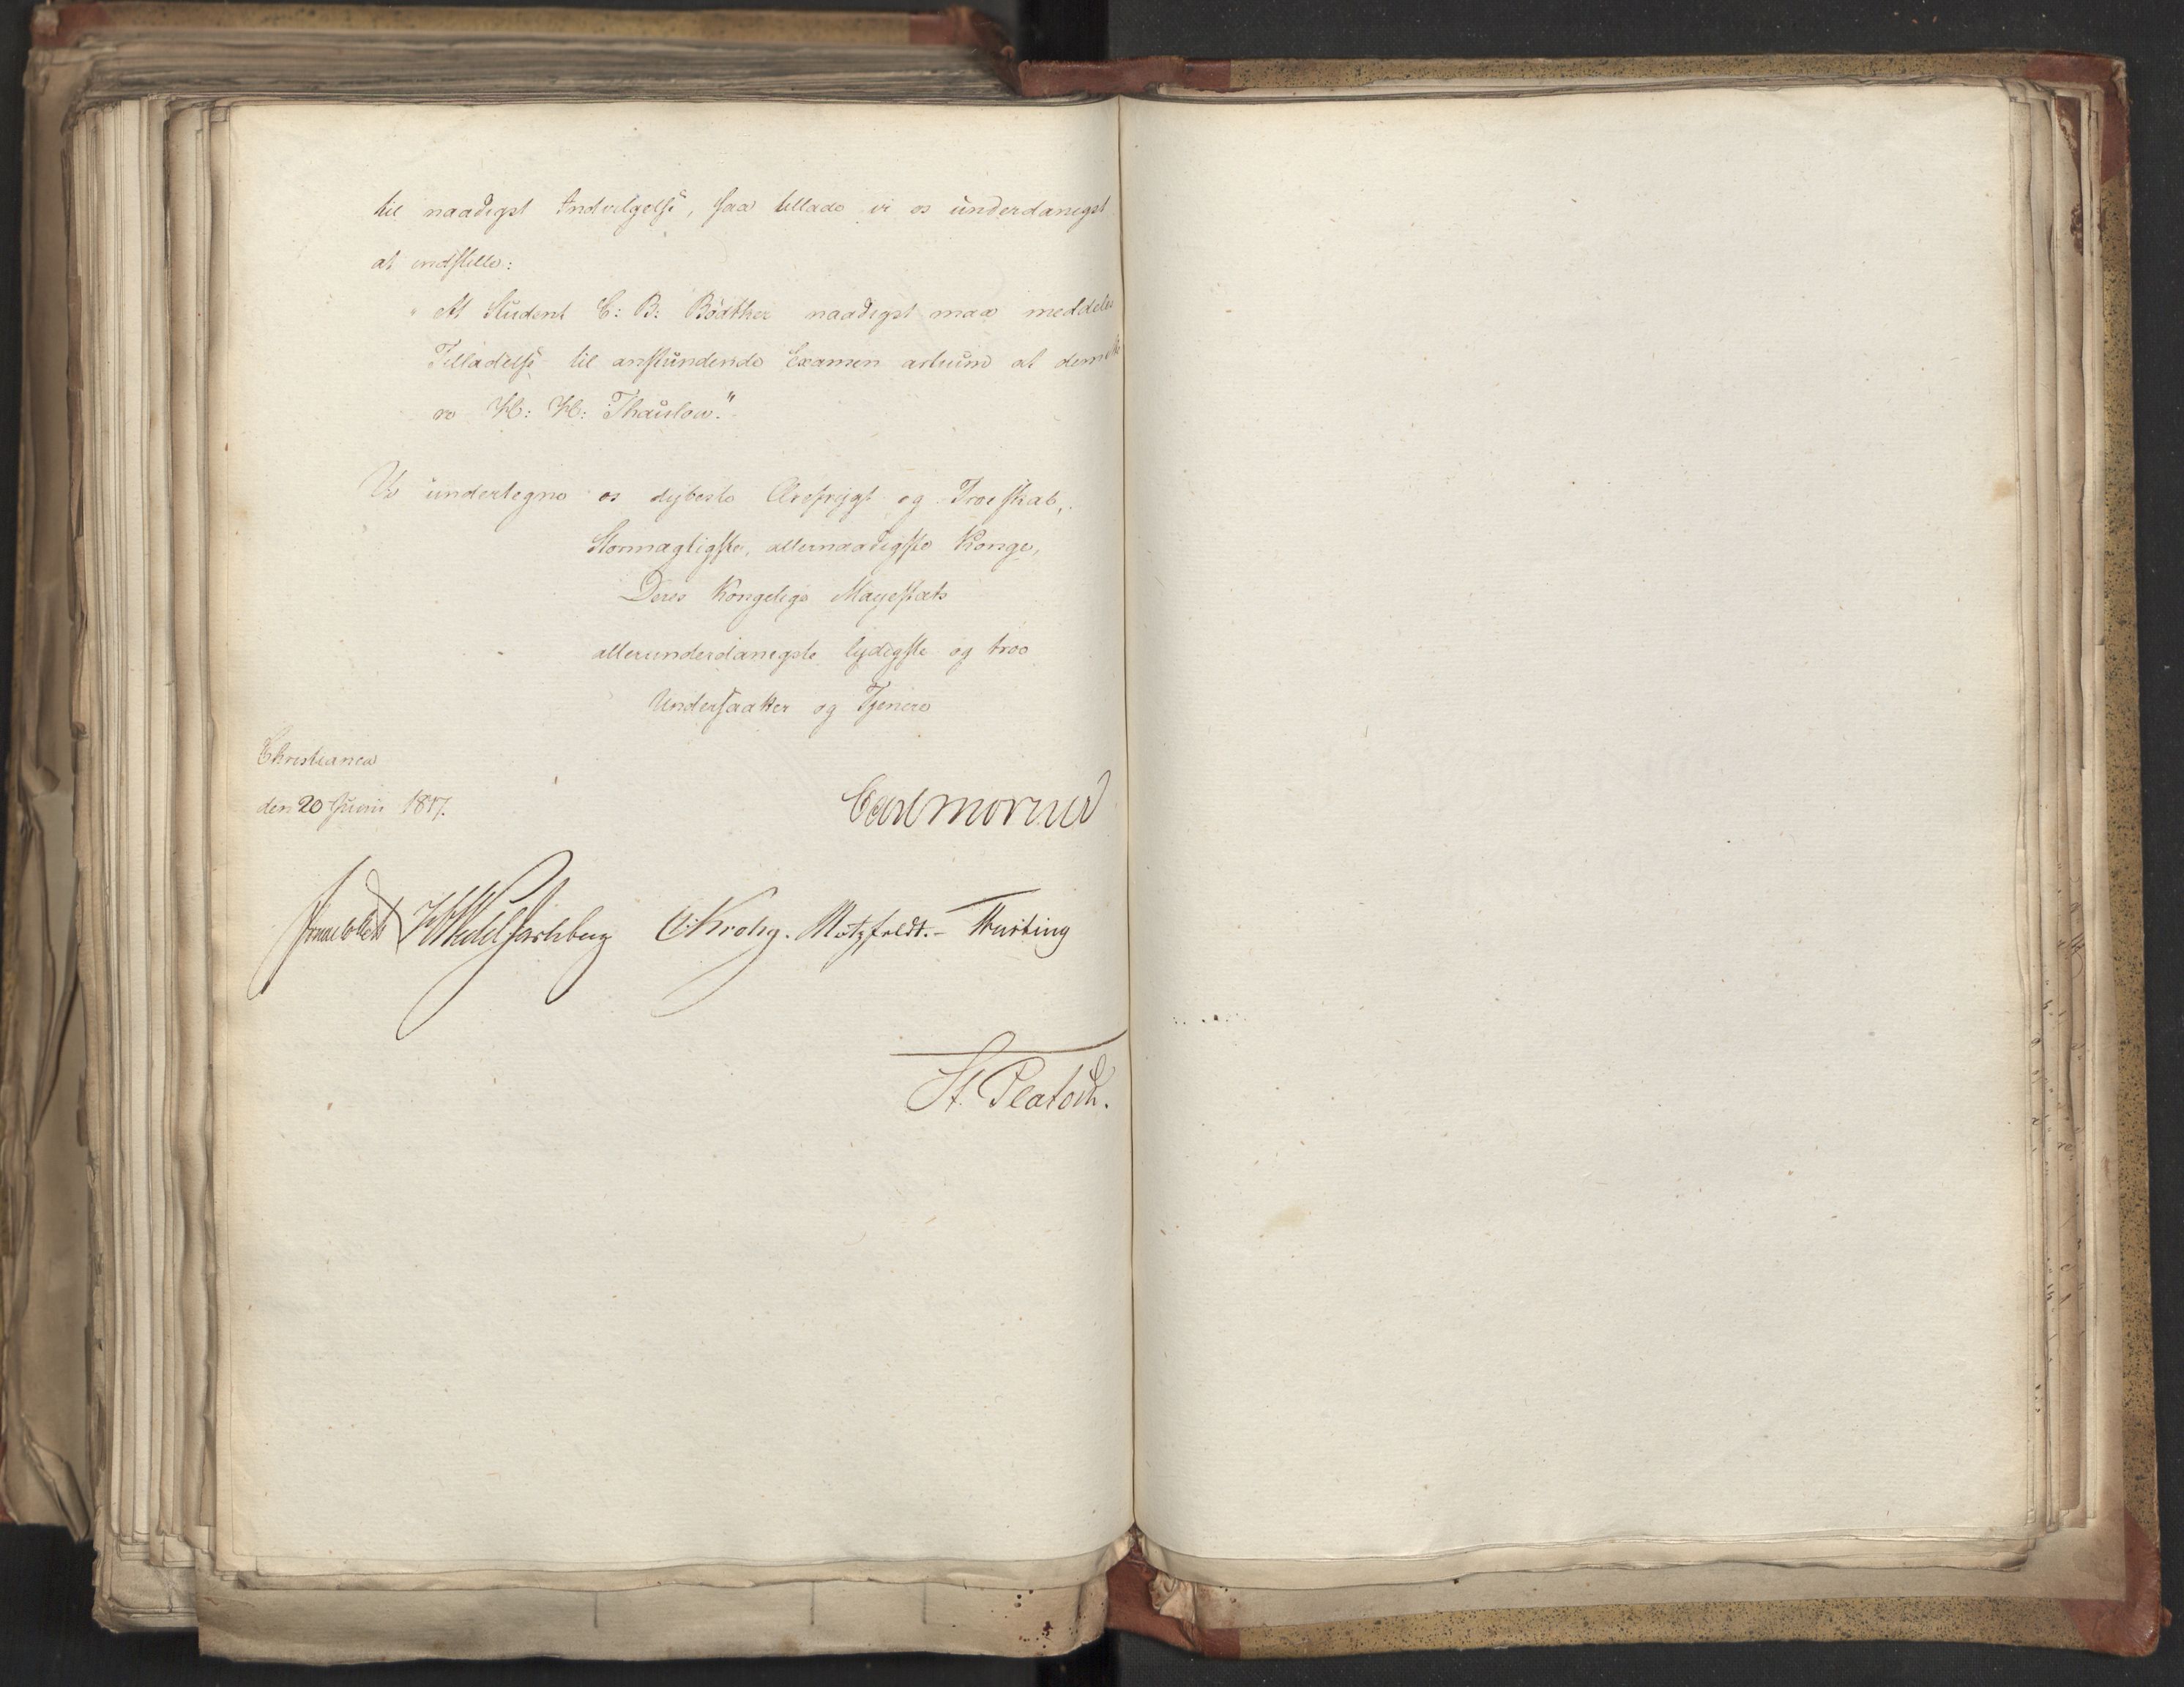 til naadigst Indvilgelse, saa tillade vi os underdanigst
at indstille:
"At Student C: B: Bødtker naadigst maa meddeles
Tilladelse til anstundende Examen artium at demitte
re H: H: Thaulow."
Vi undertegne os dybeste Ærefrygt og Troeskab,
Stormægtigste, allernaadigste Konge,
Deres Kongelige Majestæts
allerunderdanigste lydigste og troe
Undersaatter og Tjenere
Christiania
den 20 Juni 1817.
Carl Mörner
Sommerfeldt HWedel Jarlsberg CKrohg. Motzfeldt. - Treschow
St. Platoüh.